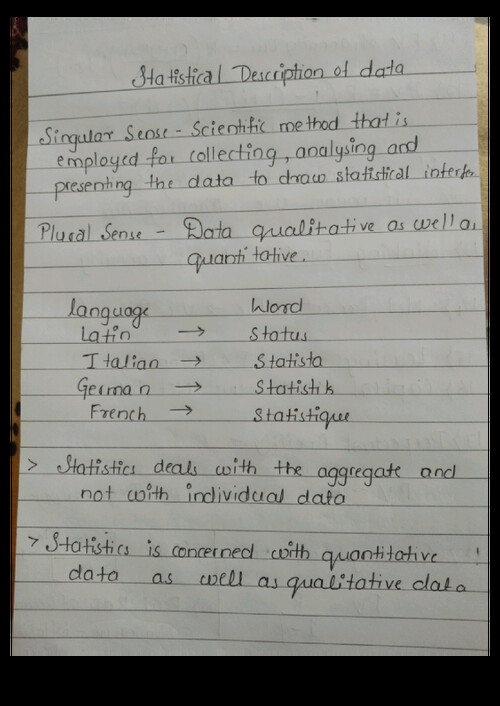 Statistical Description of data
Singular Sense - Scientific method that is
employed for collecting, analysing and
presenting the data to draw statistical interfer
Plural Sense - Data qualitative as well as
quantitative.
language Word
Latin → Status
Italian → Statista
German → Statistik
French → Statistique
> Statistics deals with the aggregate and
not with individual data
> Statistics is concerned with quantitative
data as well as qualitative data